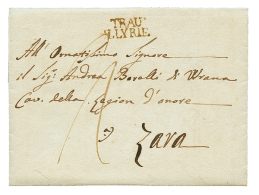 TRAU
ILLYRIE
All' Ornatissimo Signore
il Sig.r Andrea Borelli di Wrana
Cav. della Legion d'onore
Zara